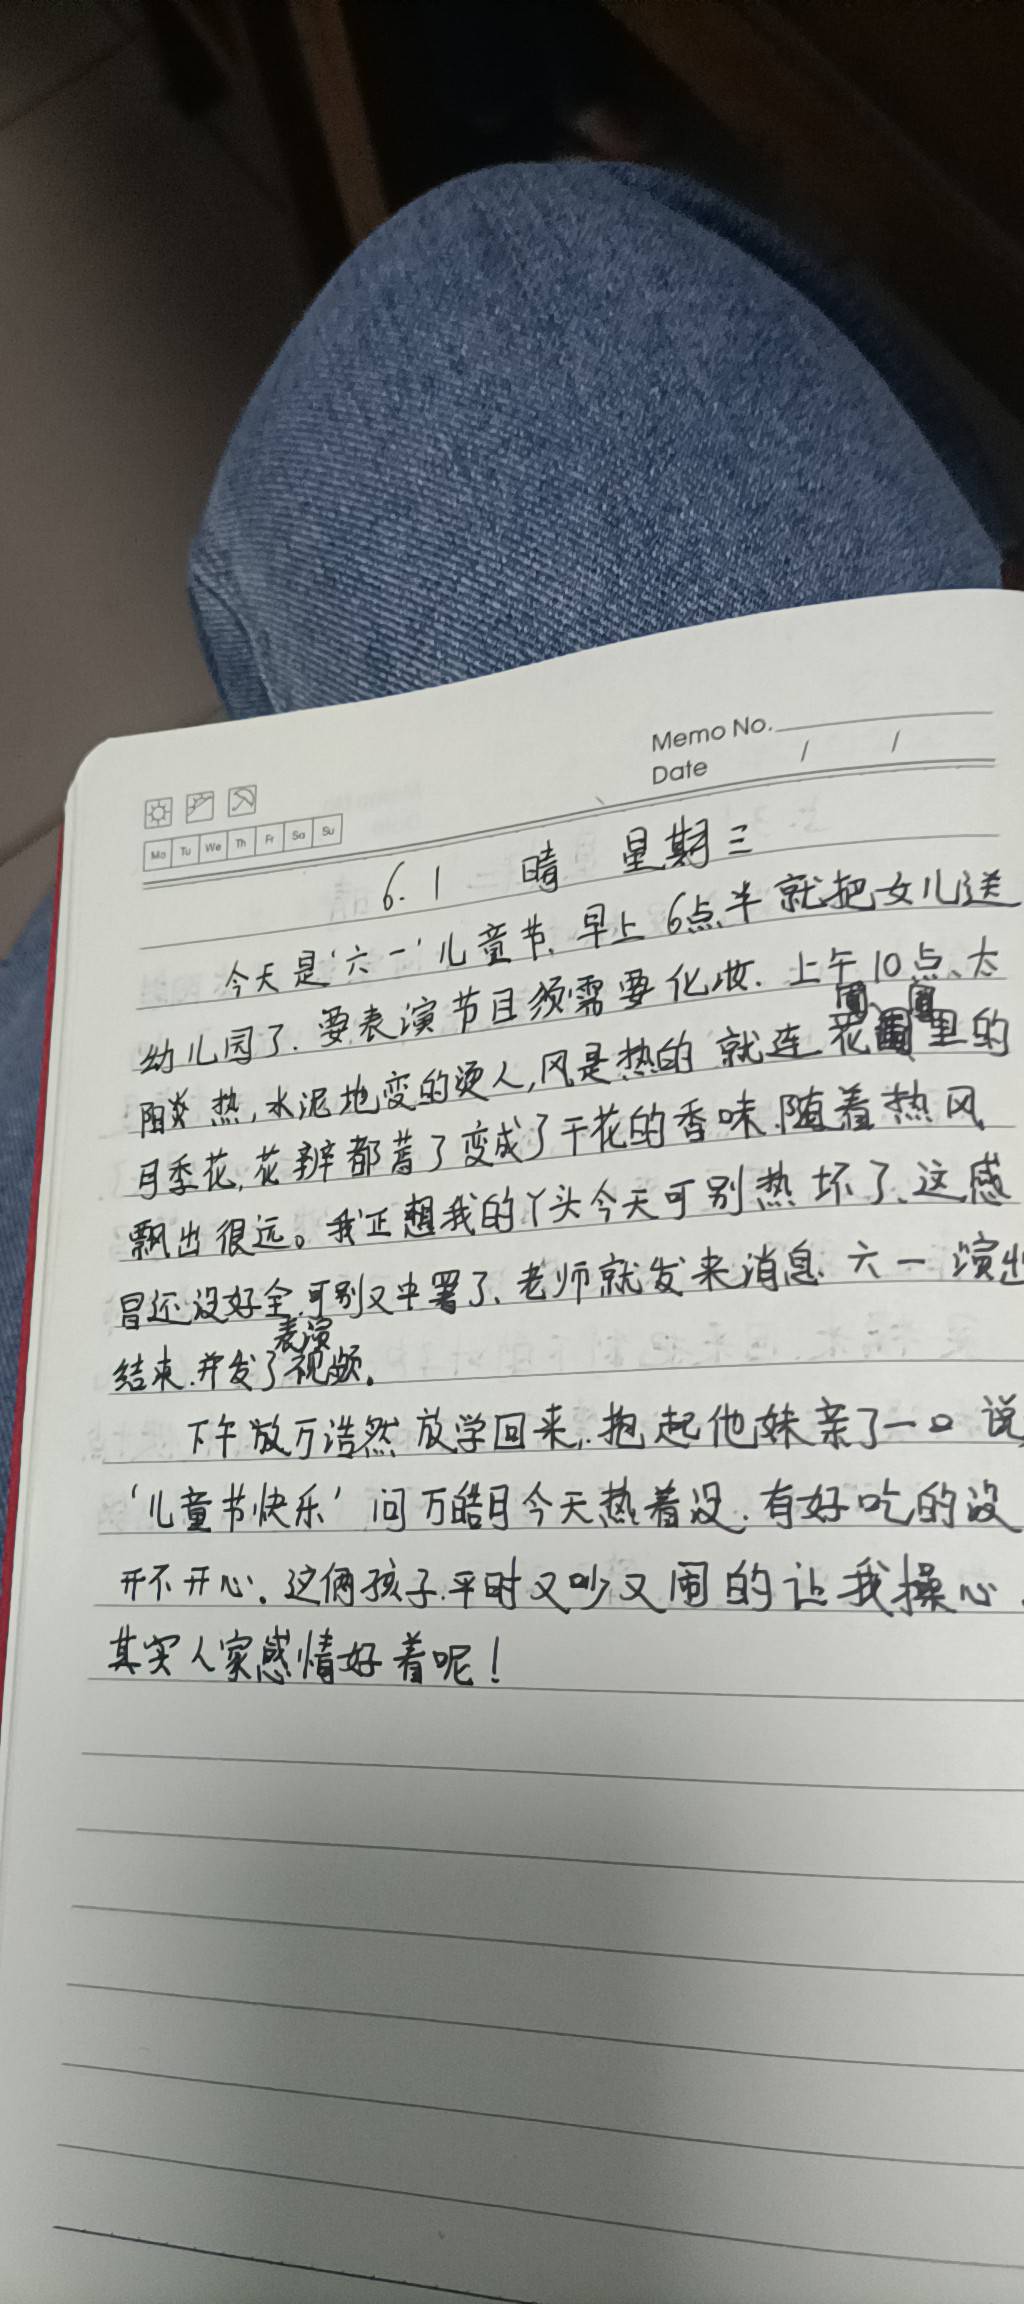 Memo No.
Date / /
Mo Tu We Th Fr Sa Su
6.1 晴 星期三
今天是‘六一’儿童节.早上6点半就把女儿送
幼儿园了.要表演节目须需要化妆.上午10点、太
阳炎热,水泥地变的烫人,风是热的 就连花里的
月季花,花辨都蔫了变成了干花的香味.随着热风
飘出很远。我正想我的丫头今天可别热坏了、这感
冒还没好全.可别又中署了、老师就发来消息.六一演出
表演
结束.并发了视频。
下午放万浩然放学回来,.抱起他妹亲了一口说
‘儿童节快乐’问万皓月今天热着没.有好吃的没
开不开心。这俩孩子.平时又吵又闹的让我操心.
其实人家感情好着呢!